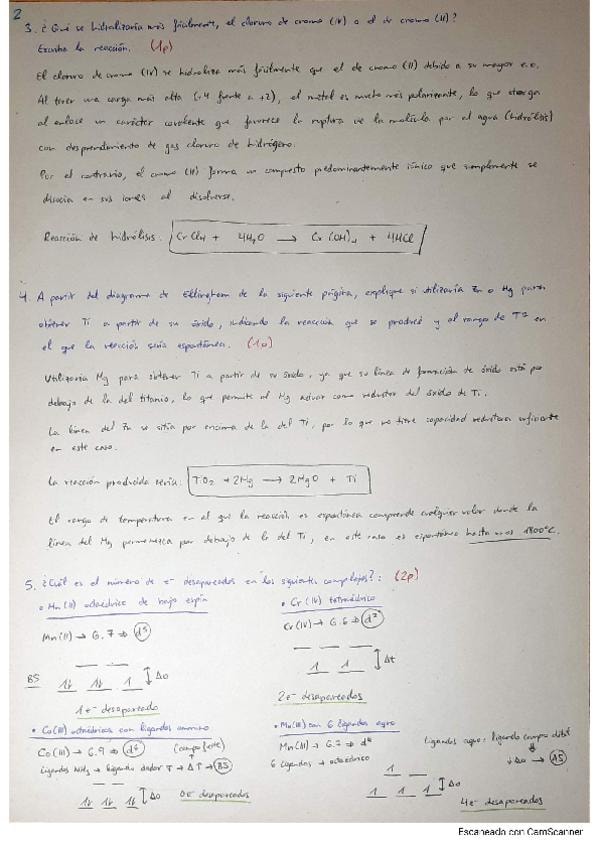 2
3. ¿Qué se hidrolizaría más fácilmente, el cloruro de cromo (IV) o el de cromo (II)?
Escriba la reacción. (1p)
El cloruro de cromo (IV) se hidroliza más fácilmente que el de cromo (II) debido a su mayor e.o.
Al tener una carga más alta (+4 frente a +2), el metal es mucho más polarizante, lo que otorga
al enlace un carácter covalente que favorece la ruptura de la molécula por el agua (hidrólisis)
con desprendimiento de gas cloruro de hidrógeno.
Por el contrario, el cromo (II) forma un compuesto predominantemente iónico que simplemente se
disocia en sus iones al disolverse.
Reacción de hidrólisis: CrCl4 + 4H2O → Cr(OH)4 + 4HCl
4. A partir del diagrama de Ellingham de la siguiente página, explique si utilizaría Zn o Mg para
obtener Ti a partir de su óxido, indicando la reacción que se produce y el rango de Tª en
el que la reacción sería espontánea. (1p)
Utilizaría Mg para obtener Ti a partir de su óxido, ya que su línea de formación de óxido está por
debajo de la del titanio, lo que permite al Mg actuar como reductor del óxido de Ti.
La línea del Zn se sitúa por encima de la del Ti, por lo que no tiene capacidad reductora suficiente
en este caso.
La reacción producida sería: TiO2 + 2Mg → 2MgO + Ti
El rango de temperatura en el que la reacción es espontánea comprende cualquier valor donde la
línea del Mg permanezca por debajo de la del Ti, en este caso es espontánea hasta unos 1800°C.
5. ¿Cuál es el número de e⁻ desapareados en los siguientes complejos?: (2p)
• Mn(II) octaédrico de bajo espín
Mn(II) → G.7 ⇒ d⁵
BS
Δo
1 e⁻ desapareado
• Cr(IV) tetraédrico
Cr(IV) → G.6 ⇒ d²
Δt
2 e⁻ desapareados
• Co(III) octaédrico con ligandos ammino
Co(III) → G.9 ⇒ d⁶ (campo fuerte)
Ligandos NH3 → ligando dador σ → Δ↑ → BS
Δo
0 e⁻ desapareados
• Mn(III) con 6 ligandos aquo
Mn(III) → G.7 ⇒ d⁴
6 ligandos → octaédrico
Ligandos aquo: ligando campo débil
↓Δo → AS
Δo
4 e⁻ desapareados
Escaneado con CamScanner